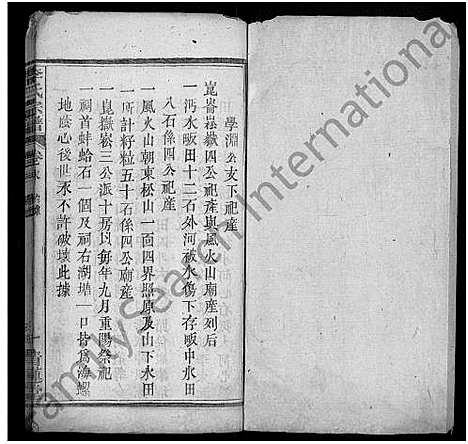 學淵公支下祀產
崑崙崧嶽四公祀產與風火山廟產列后
一沔水畈田十二石外河被水傷下存畈中水田
八石係四公祀産
一風火山朝東松山一面四界照原及山下水田
一所計籽粒五十石係四公廟産
一崑嶽崧三公派十房以每年九月重陽祭祀
一祠首蚌蛤石一個及祠右湖塘一口皆為漁螺
地蔭心後世永不許破壞此據
氏宗譜
FamilySearch International